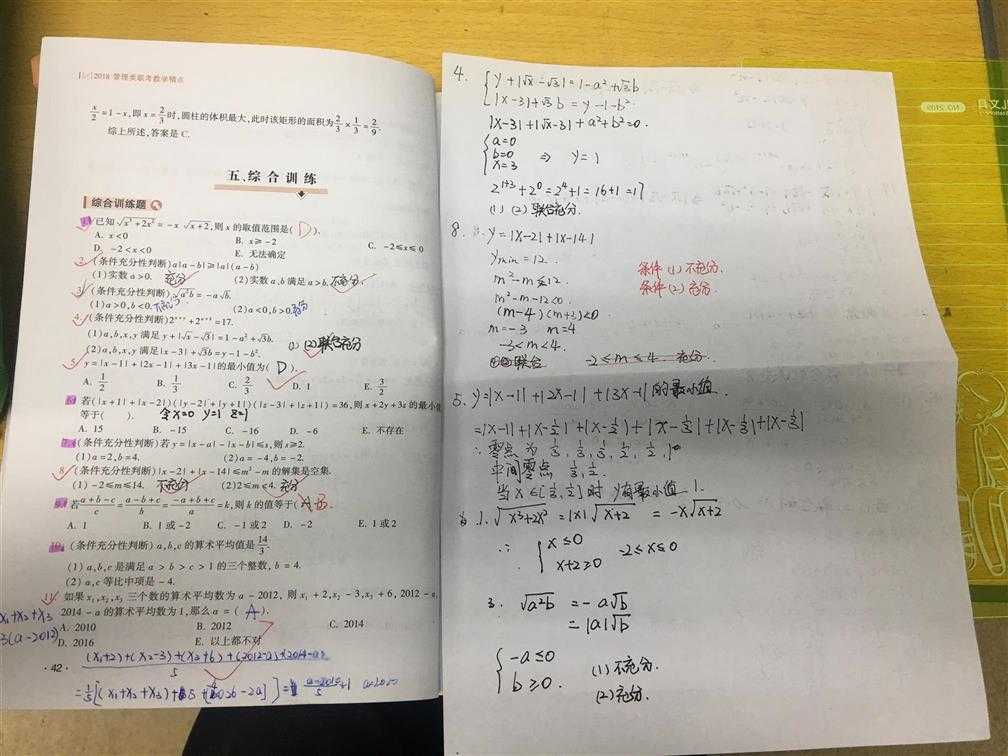 2018 管理类联考数学精点
x/2=1-x,即 x=2/3时,圆柱的体积最大,此时该矩形的面积为2/3×1/3=2/9.
综上所述,答案是 C.
五、综合训练
综合训练题
1. 已知√(x³+2x²)=-x√(x+2),则 x 的取值范围是( D ).
A. x<0 B. x≥-2 C. -2≤x≤0
D. -2<x<0 E. 无法确定
2. (条件充分性判断)a|a-b|≥|a|(a-b)
(1)实数 a>0. 充分 (2)实数 a,b 满足 a>b. 不充分.
3. (条件充分性判断)√(a²b)=-a√b.
(1)a>0,b<0. 不充分 (2)a<0,b>0. 充分
4. (条件充分性判断)2^(x+y)+2^(a+b)=17.
(1)a,b,x,y 满足 y+|√x-√3|=1-a²+√3b.
(1)(2)联合充分
(2)a,b,x,y 满足|x-3|+√3b=y-1-b².
5. y=|x-1|+|2x-1|+|3x-1|的最小值为( D ).
A. 1/2 B. 1/3 C. 2/3 D. 1 E. 3/2
6. 若(|x+1|+|x-2|)(|y-2|+|y+1|)(|z-3|+|z+1|)=36,则 x+2y+3z 的最小值
等于( ). 令x=0 y=1 z=1
A. 15 B. -15 C. -16 D. -6 E. 不存在
7. (条件充分性判断)若 y=|x-a|-|x-b|≤s,则 s≥2.
(1)a=2,b=4. (2)a=-4,b=-2.
8. (条件充分性判断)|x-2|+|x-14|≤m²-m 的解集是空集.
(1)-2≤m≤14. 不充分 (2)2≤m<4. 充分
9. 若(a+b-c)/c=(a-b+c)/b=(-a+b+c)/a=k,则 k 的值等于( B.
A. 1 B. 1 或 -2 C. -1 或 2 D. -2 E. 1 或 2
10. (条件充分性判断)a,b,c 的算术平均值是14/3.
(1)a,b,c 是满足 a>b>c>1 的三个整数, b=4.
(2)a,c 等比中项是 -4.
11. 如果 x₁,x₂,x₃ 三个数的算术平均数为 a-2012, 则 x₁+2,x₂-3,x₃+6, 2012-a,
2014-a 的算术平均数为 1,那么 a=( A ).
A. 2010 B. 2012 C. 2014
D. 2016 E. 以上都不对
x₁+x₂+x₃
3(a-2012)
·42·
(x₁+2)+(x₂-3)+(x₃+6)+(2012-a)+(2014-a)
5
4.
y+|√x-√3|=1-a²+√3b
|x-3|+√3b=y-1-b²
|x-3|+|√x-√3|+a²+b²=0.
a=0
b=0 ⇒ y=1
x=3
2^(1+3)+2^0=2^4+1=16+1=17
(1)(2)联合充分.
8. y=|x-2|+|x-14|
ymin=12.
m²-m<12.
条件(1)不充分.
m²-m-12<0.
条件(2)充分.
(m-4)(m+3)<0
m=-3 m=4
-3<m<4.
联合 -2≤m≤4 充分.
5. y=|x-1|+|2x-1|+|3x-1|的最小值.
=|x-1|+|x-1/2|+|x-1/2|+|x-1/3|+|x-1/3|+|x-1/3|
∴零点为 1/3, 1/3, 1/3, 1/2, 1/2, 1.
中间零点 1/3, 1/2.
当 x∈[1/3,1/2]时 y有最小值 1.
1. √(x³+2x²)=|x|√(x+2) =-x√(x+2)
∴ x≤0 -2≤x≤0
x+2≥0
3. √(a²b) =-a√b
=|a|√b
-a≤0 (1)不充分.
b≥0. (2)充分.
NO.2109